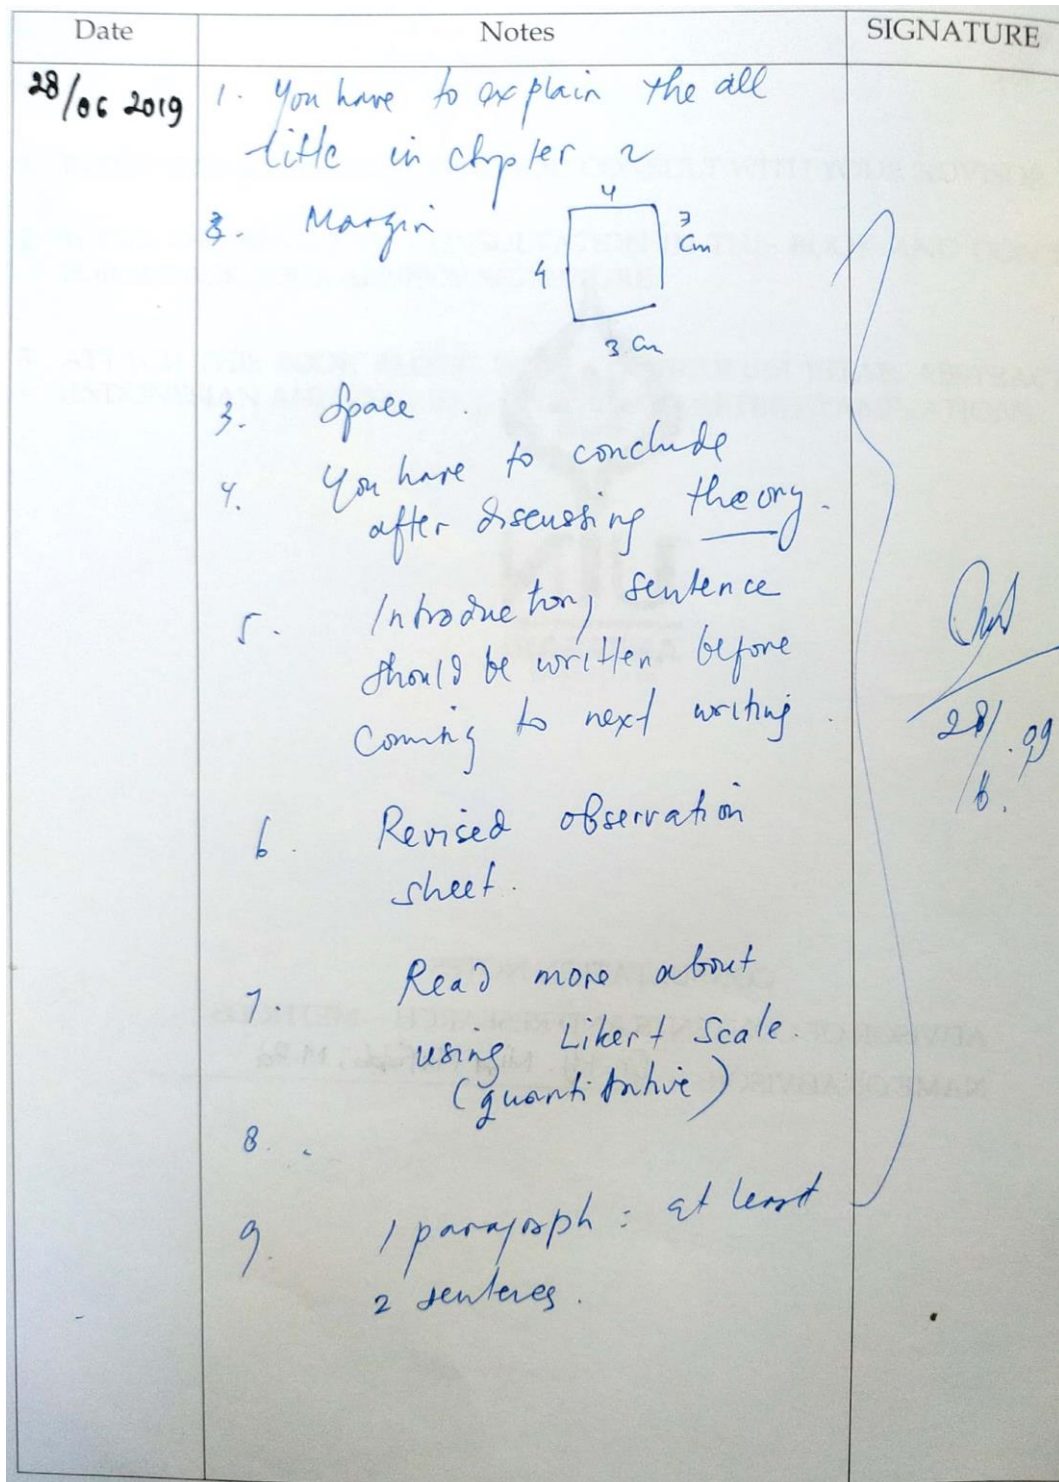 Date Notes SIGNATURE
28/06 2019
1. You have to explain the all
title in chpter 2
2. Margin
4
3
cm
4
3 cm
3. Space.
4. You have to conclude
after discussing theory.
5. Introductory sentence
should be written before
coming to next writing.
28/
6.
6. Revised observation
sheet.
7. Read more about
using Likert Scale.
(quantitative)
8.
9. 1 paragraph : at least
2 sentences.